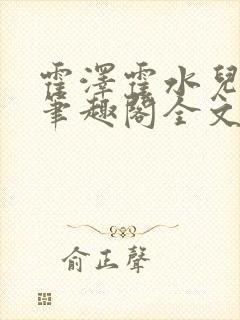 霍澤霍水兒
筆趣閣全文
俞正聲